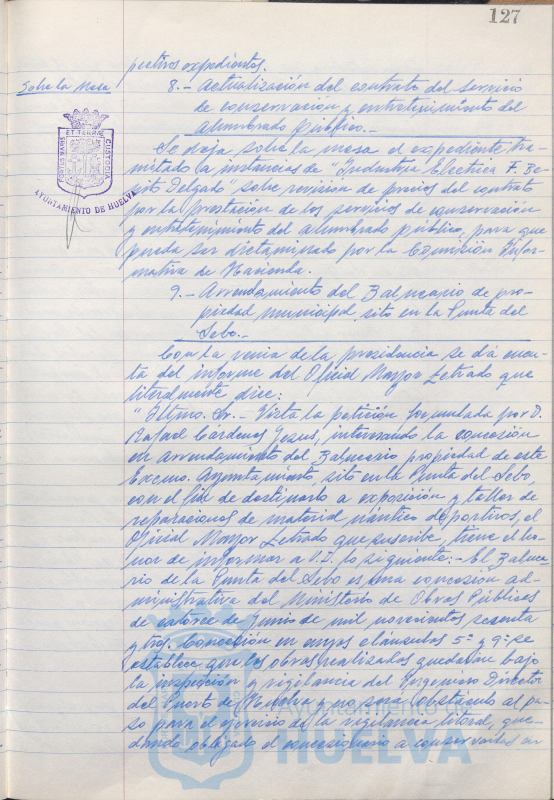 127
pectivos expedientes.
Sobre la Mesa
8.- Actualización del contrato del servicio
de conservación y entretenimiento del
alumbrado público.-
Se deja sobre la mesa el expediente tra-
mitado a instancias de "Industria Electrica F. Be-
nito Delgado" sobre revisión de precios del contrato
por la prestación de los servicios de conservación
y entretenimiento del alumbrado público, para que
pueda ser dictaminado por la Comisión Infor-
mativa de Hacienda.
PORTUS MARIS
ET TERRAE
CUSTODIA
AYUNTAMIENTO DE HUELVA
9.- Arrendamiento del Balneario de pro-
piedad municipal, sito en la Punta del
Sebo.-
Con la venia de la presidencia se dá cuen-
ta del informe del Oficial Mayor Letrado que
literalmente dice:
"Iltmo. Sr.- Vista la petición formulada por D.
Rafael Cárdenas Jesus, interesando la concesión
en arrendamiento del Balneario propiedad de este
Excmo. Ayuntamiento, sito en la Punta del Sebo,
con el fin de destinarlo a exposición y taller de
reparaciones de material náutico deportivos, el
Oficial Mayor Letrado que suscribe, tiene el ho-
nor de informar a V.I. lo siguiente:- El Balnea-
rio de la Punta del Sebo es una concesión ad-
ministrativa del Ministerio de Obras Públicas
de catorce de Junio de mil novecientos sesenta
y tres. Concesión en cuyas cláusulas 5ª y 9ª se
establece que las obras realizadas quedarán bajo
la inspección y vigilancia del Ingeniero Director
del Puerto de Huelva y no será obstáculo al pa-
so para el ejercicio de la vigilancia litoral, que-
dando obligado el concesionario a conservarlas en
HUELVA